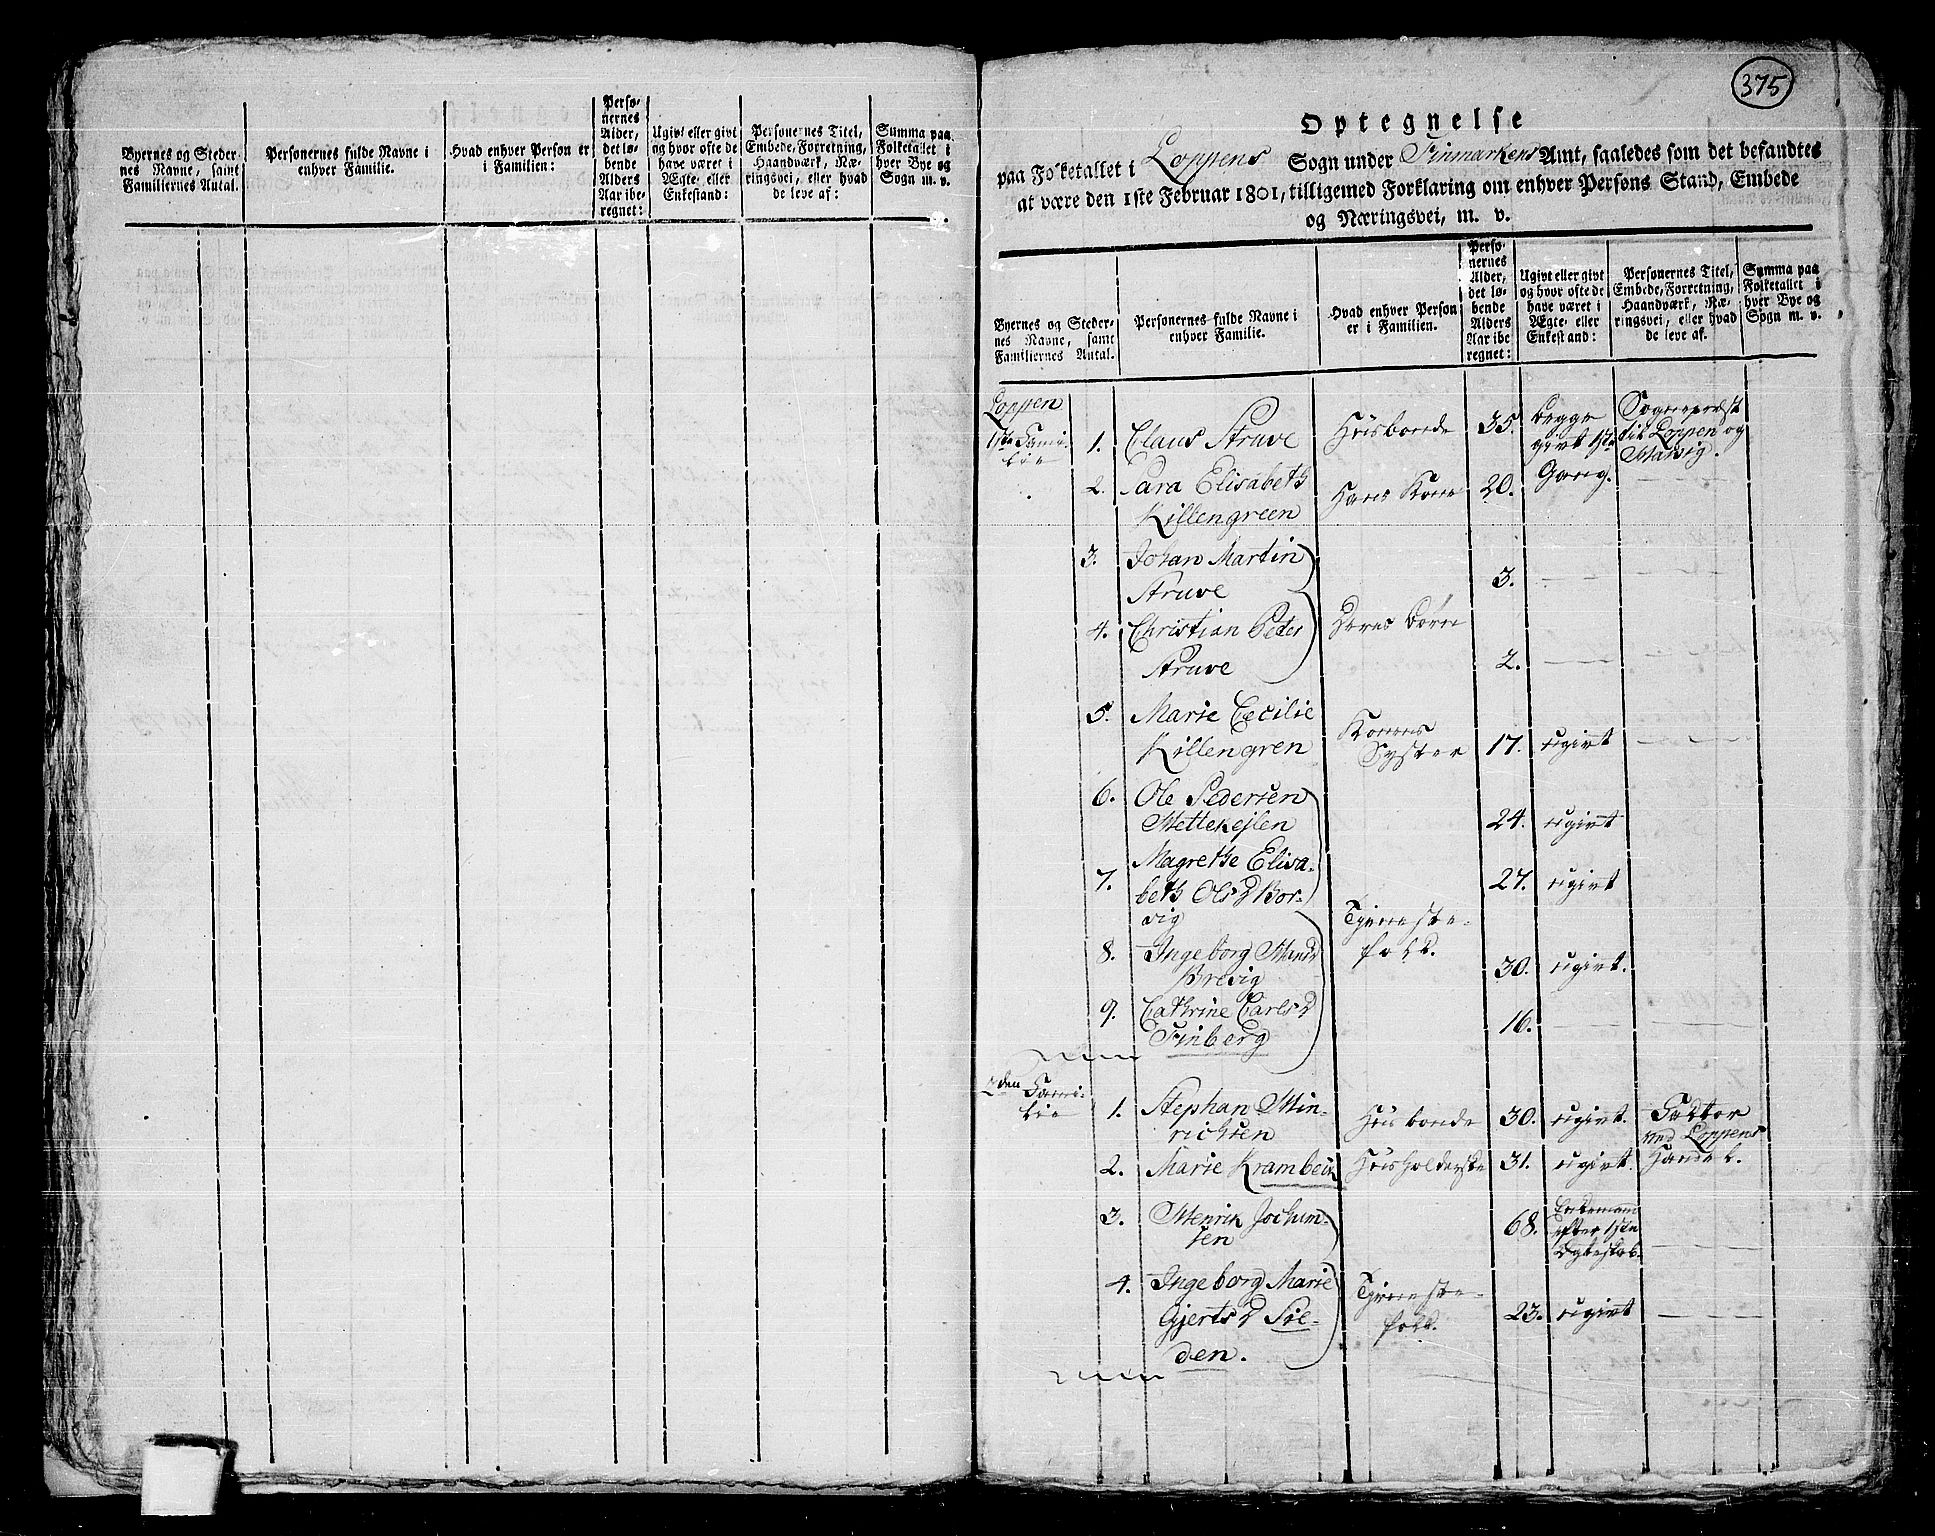 Byernes og Steder-
nes Navne, samt
Familiernes Antal.
Personernes fulde Navne i
enhver Familie.
Hvad enhver Person er
i Familien:
Perso-
nernes
Alder,
det lø-
bende
Alders
Aar ibe-
regnet:
Ugivt eller givt
og hvor ofte de
have været i
Ægte- eller
Enkestand:
Personernes Titel,
Embede, Forretning,
Haandværk, Næ-
ringsvei, eller hvad
de leve af:
Summa paa
Folketallet i
hver Bye og
Sogn m. v.
375
Optegnelse
paa Folketallet i Loppens Sogn under Finmarkens Amt, saaledes som det befandtes
at være den 1ste Februar 1801, tilligemed Forklaring om enhver Persons Stand, Embede
og Næringsvei, m. v.
Byernes og Steder-
nes Navne, samt
Familiernes Antal.
Personernes fulde Navne i
enhver Familie.
Hvad enhver Person
er i Familien.
Perso-
nernes
Alder,
det lø-
bende
Alders
Aar ibe-
regnet:
Ugivt eller givt
og hvor ofte de
have været i
Ægte- eller
Enkestand:
Personernes Titel,
Embede, Forretning,
Haandværk, Næ-
ringsvei, eller hvad
de leve af.
Summa paa
Folketallet i
hver Bye og
Sogn m. v.
Loppen
1ste Fami-
lie
1. Claus Struve Huusbonde 35. begge
givt 1ste
Gang. Sognepræst
til Loppen og
Hasvig.
2. Sara Elisabeth
Killengreen Hans Kone 20.
3. Johan Martin
Struve 3.
4. Christian Peder
Struve Deres Børn 2.
5. Marie Cecilie
Killengren Konens
Syster 17. ugivt
6. Ole Pedersen
Mettekejlen 24. ugivt
7. Magrethe Elisa-
beth Olsd Bor-
vig 27. ugivt
Tjeneste-
folk.
8. Ingeborg Hansd
Brevig 30. ugivt.
9. Cathrine Carlsd
Finberg 16.
2den Fami-
lie
1. Stephan Hin-
richsen Huusbonde 30. ugivt. Factor
ved Loppens
Handel.
2. Marie Krambeü Huusholderske 31. ugivt.
3. Henrik Jochum-
sen 68. Enkemann
efter 1ste
Ægteskab.
4. Ingeborg Marie
Gjertsd Sie-
den. Tjeneste-
folk. 23. ugivt